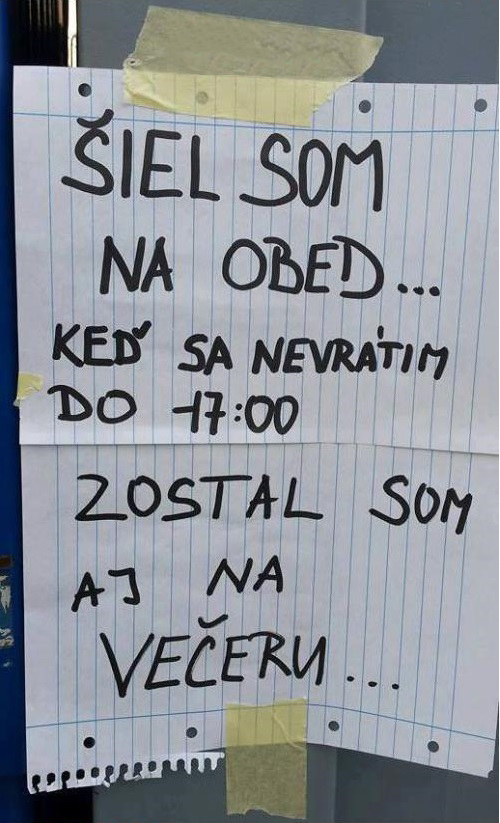 ŠIEL SOM
NA OBED...
KEĎ SA NEVRÁTIM
DO 17:00
ZOSTAL SOM
AJ NA
VEČERU...